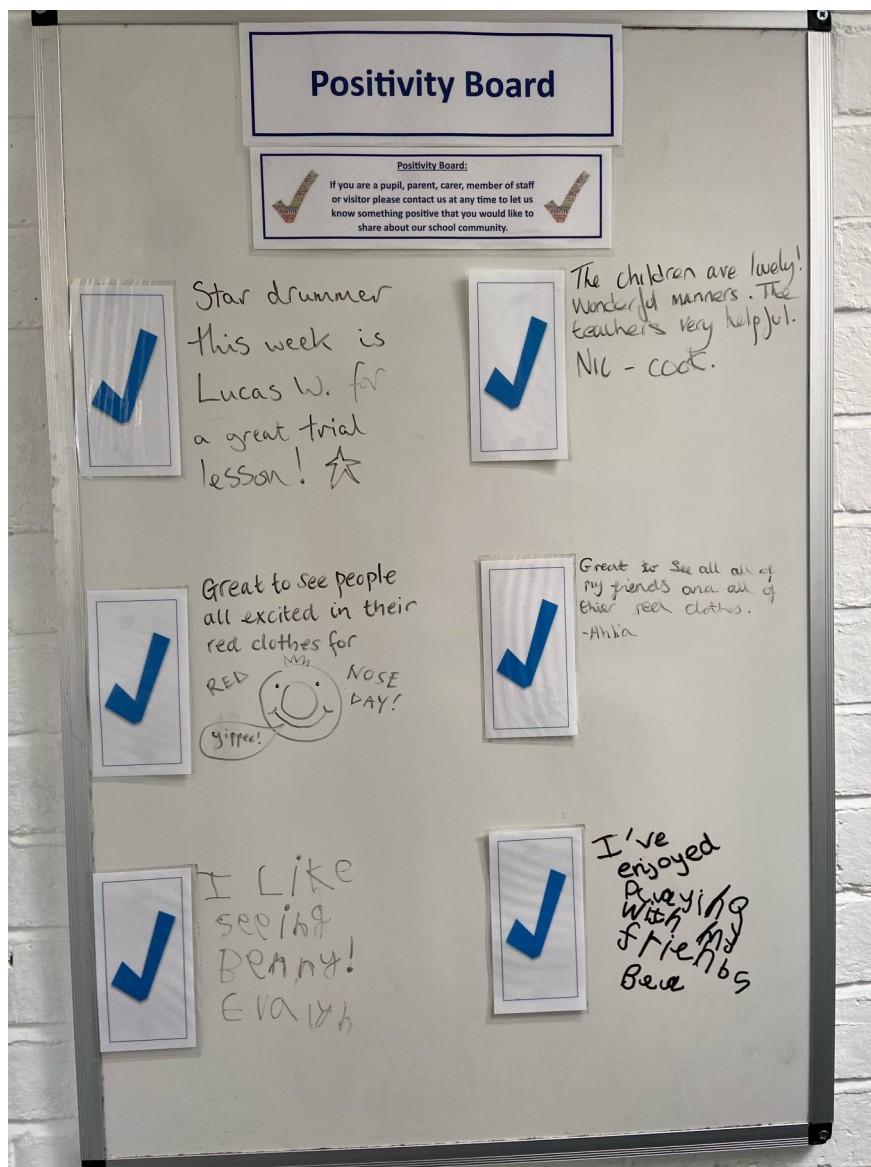 Positivity Board
Positivity Board:
If you are a pupil, parent, carer, member of staff
or visitor please contact us at any time to let us
know something positive that you would like to
share about our school community.
Star drummer
this week is
Lucas W. for
a great trial
lesson!
The children are lovely!
Wonderful manners. The
teachers very helpful.
Nic - cook.
Great to see people
all excited in their
red clothes for
RED
NOSE
DAY!
yippee!
Great to see all all of
my friends and all of
thier red clothes.
I Like
seeing
Benny!
I've
enjoyed
Playing
With my
friends
Bea